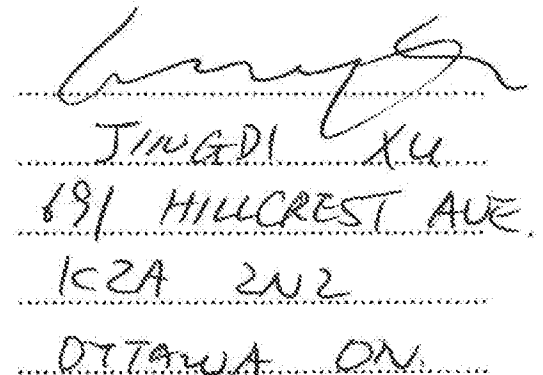 JINGDI XU
691 HILLCREST AVE.
K2A 2N2
OTTAWA ON.